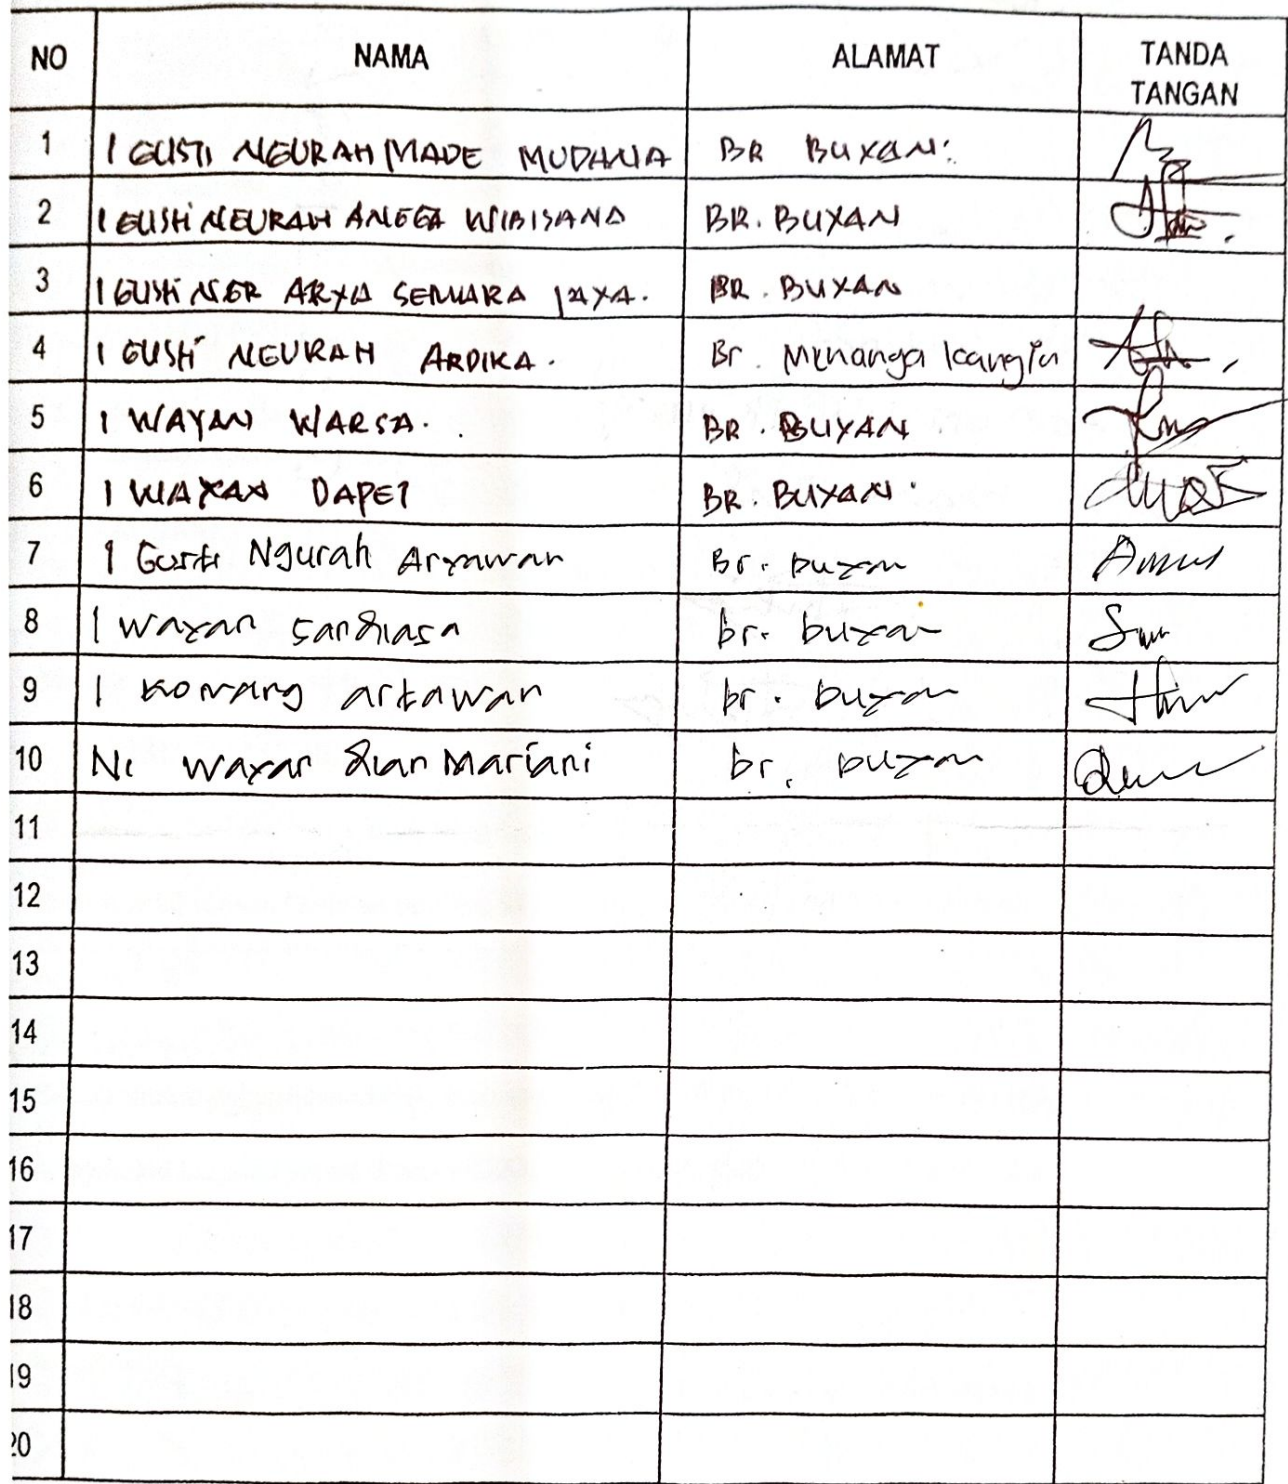 NO NAMA ALAMAT TANDA TANGAN
1 I GUSTI NGURAH MADE MUDANA BR BUYAN.
2 I GUSTI NGURAH ANGGA WIBISANA BR. BUYAN
3 I GUSTI NGR ARYA SEMARA JAYA. BR. BUYAN
4 I GUSTI NGURAH ARDIKA. Br. Menanga kangin
5 I WAYAN WARSA. BR. BUYAN.
6 I WAYAN DAPET BR. BUYAN.
7 I Gusti Ngurah Aryawan Br. buyan
8 I Wayan Sandiasa br. buyan
9 I Komang artawan br. buyan
10 Ni Wayan dian Mariani br. buyan
11
12
13
14
15
16
17
18
19
20